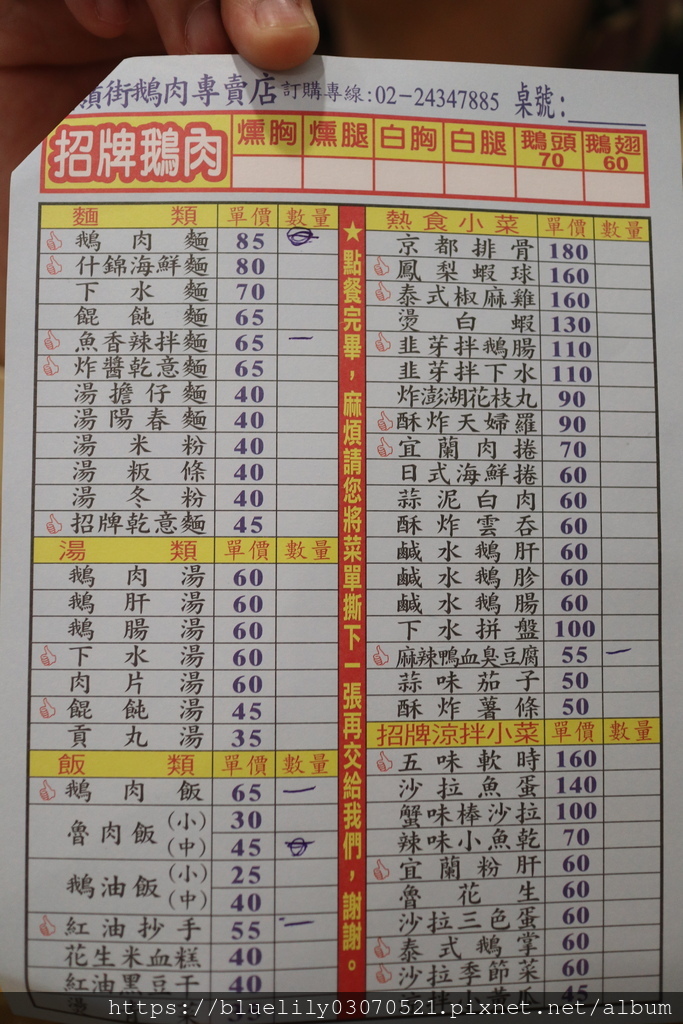 嶺街鵝肉專賣店 訂購專線:02-24347885 桌號:
招牌鵝肉 燻胸 燻腿 白胸 白腿 鵝頭70 鵝翅60
麵類 單價 數量
鵝肉麵 85
什錦海鮮麵 80
下水麵 70
餛飩麵 65
魚香辣拌麵 65 一
炸醬乾意麵 65
湯擔仔麵 40
湯陽春麵 40
湯米粉 40
湯粄條 40
湯冬粉 40
招牌乾意麵 45
湯類 單價 數量
鵝肉湯 60
鵝肝湯 60
鵝腸湯 60
下水湯 60
肉片湯 60
餛飩湯 45
貢丸湯 35
飯類 單價 數量
鵝肉飯 65 一
魯肉飯 (小) 30
(中) 45
鵝油飯 (小) 25
(中) 40
紅油抄手 55 一
花生米血糕 40
紅油黑豆干 40
★點餐完畢，麻煩請您將菜單撕下一張再交給我們，謝謝。
熱食小菜 單價 數量
京都排骨 180
鳳梨蝦球 160
泰式椒麻雞 160
燙白蝦 130
韭芽拌鵝腸 110
韭芽拌下水 110
炸澎湖花枝丸 90
酥炸天婦羅 90
宜蘭肉捲 70
日式海鮮捲 60
蒜泥白肉 60
酥炸雲吞 60
鹹水鵝肝 60
鹹水鵝胗 60
鹹水鵝腸 60
下水拼盤 100
麻辣鴨血臭豆腐 55 一
蒜味茄子 50
酥炸薯條 50
招牌涼拌小菜 單價 數量
五味軟時 160
沙拉魚蛋 140
蟹味棒沙拉 100
辣味小魚乾 70
宜蘭粉肝 60
魯花生 60
沙拉三色蛋 60
泰式鵝掌 60
沙拉季節菜 60
https://bluelily03070521.pixnet.net/album